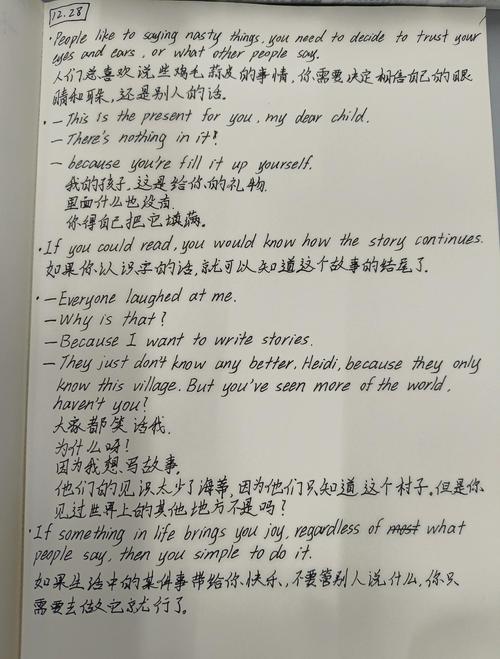 12.28
·People like to saying nasty things, you need to decide to trust your
eyes and ears, or what other people say.
人们总喜欢说些鸡毛蒜皮的事情，你需要决定相信自己的眼
睛和耳朵，还是别人的话。
·—This is the present for you, my dear child.
—There's nothing in it!
—because you're fill it up yourself.
我的孩子，这是给你的礼物.
里面什么也没有.
你得自己把它填满。
·If you could read, you would know how the story continues.
如果你认识字的话，就可以知道这个故事的结尾了。
·—Everyone laughed at me.
—Why is that?
—Because I want to write stories.
—They just don't know any better, Heidi, because they only
know this village. But you've seen more of the world,
haven't you?
大家都笑话我.
为什么呀!
因为我想写故事.
他们的见识太少了海蒂，因为他们只知道这个村子。但是你
见过世界上的其他地方不是吗?
·If something in life brings you joy, regardless of what
people say, then you simple to do it.
如果生活中的某件事带给你快乐，不要管别人说什么，你只
需要去做它就行了。